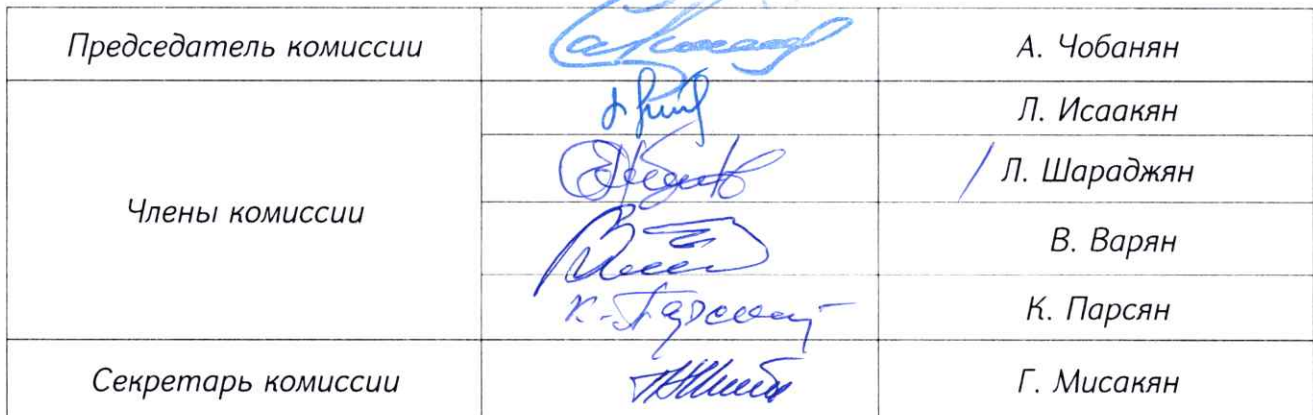 Председатель комиссии
А. Чобанян
Члены комиссии
Л. Исаакян
Л. Шараджян
В. Варян
К. Парсян
Секретарь комиссии
Г. Мисакян